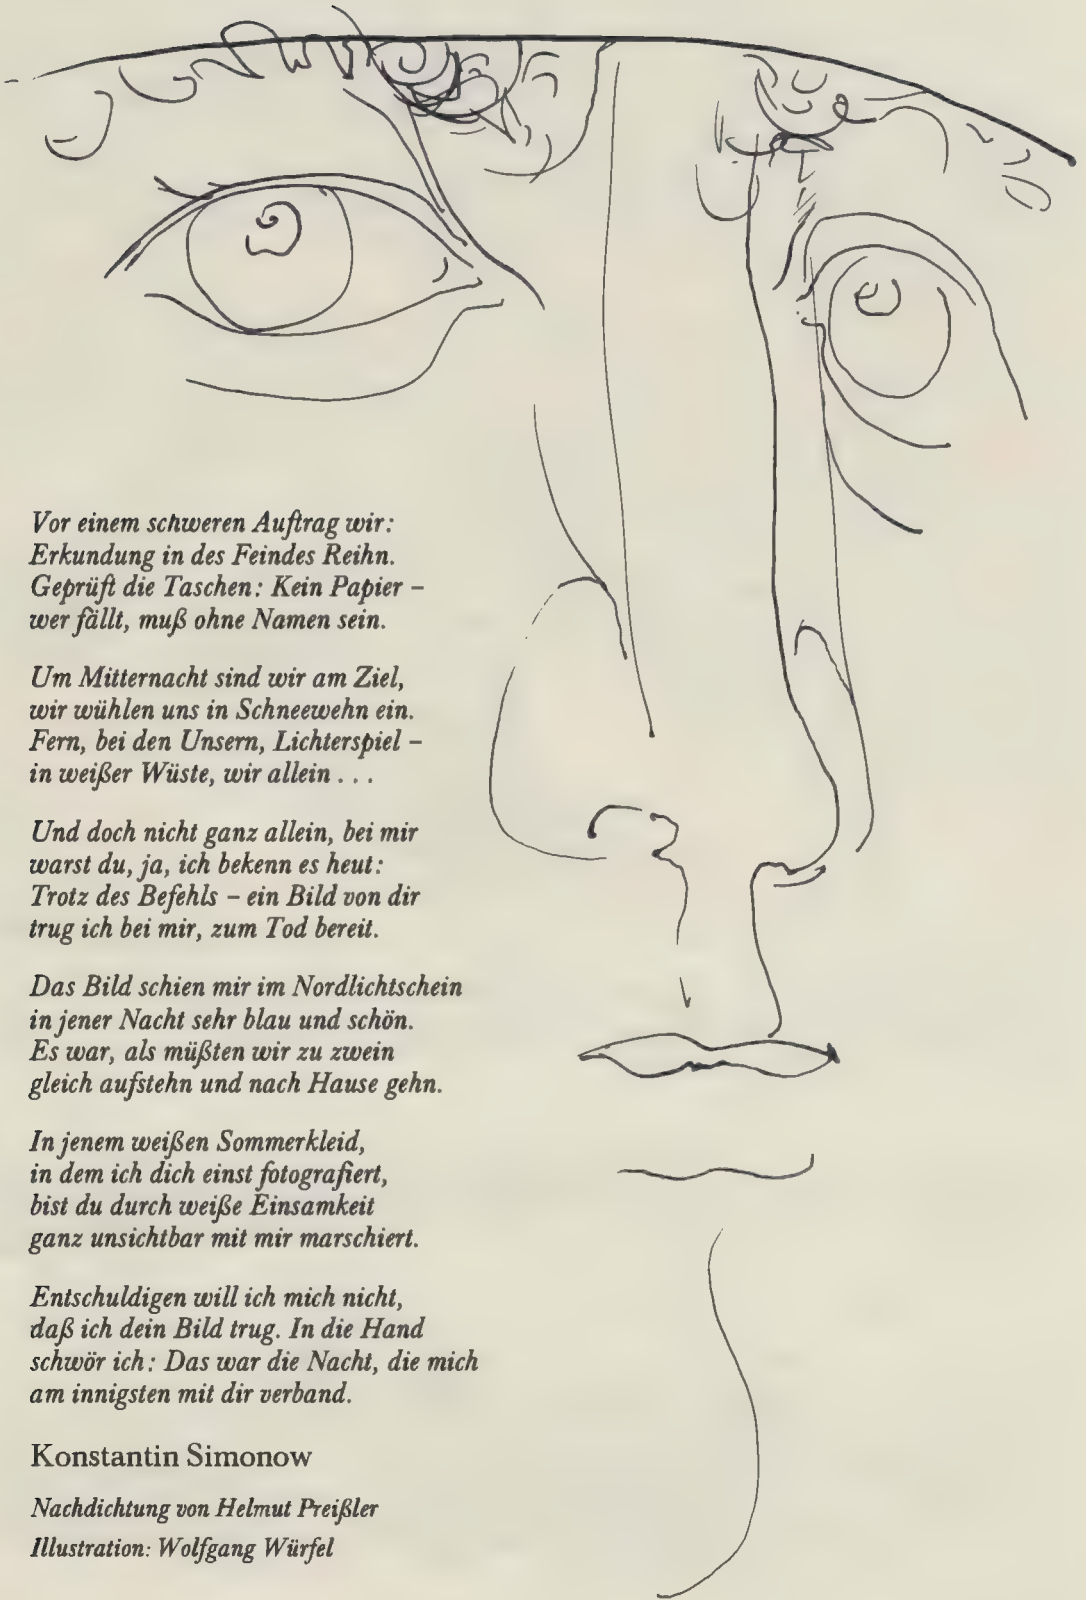 Vor einem schweren Auftrag wir:
Erkundung in des Feindes Reihn.
Geprüft die Taschen: Kein Papier –
wer fällt, muß ohne Namen sein.

Um Mitternacht sind wir am Ziel,
wir wühlen uns in Schneewehn ein.
Fern, bei den Unsern, Lichterspiel –
in weißer Wüste, wir allein . . .

Und doch nicht ganz allein, bei mir
warst du, ja, ich bekenn es heut:
Trotz des Befehls – ein Bild von dir
trug ich bei mir, zum Tod bereit.

Das Bild schien mir im Nordlichtschein
in jener Nacht sehr blau und schön.
Es war, als müßten wir zu zwein
gleich aufstehn und nach Hause gehn.

In jenem weißen Sommerkleid,
in dem ich dich einst fotografiert,
bist du durch weiße Einsamkeit
ganz unsichtbar mit mir marschiert.

Entschuldigen will ich mich nicht,
daß ich dein Bild trug. In die Hand
schwör ich: Das war die Nacht, die mich
am innigsten mit dir verband.

Konstantin Simonow
Nachdichtung von Helmut Preißler
Illustration: Wolfgang Würfel